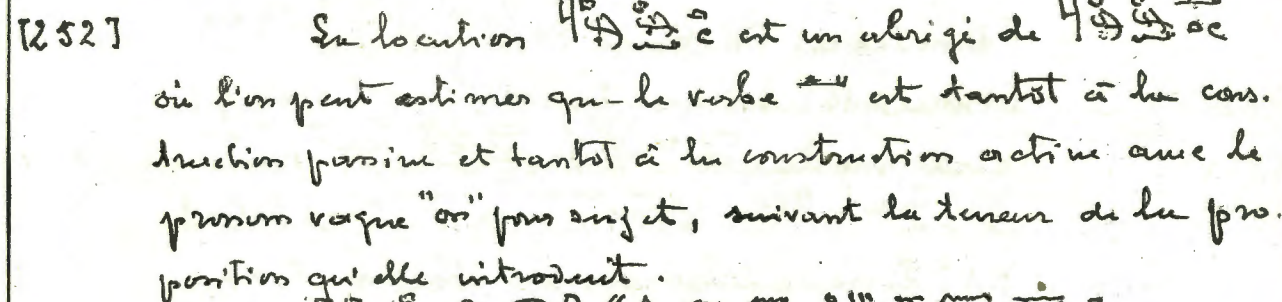 [252] La locution est un abrégé de
où l'on peut estimer que le verbe est tantôt à la cons-
truction passive et tantôt à la construction active avec le
pronom vague "on" pour sujet, suivant la teneur de la pro-
position qu'elle introduit.